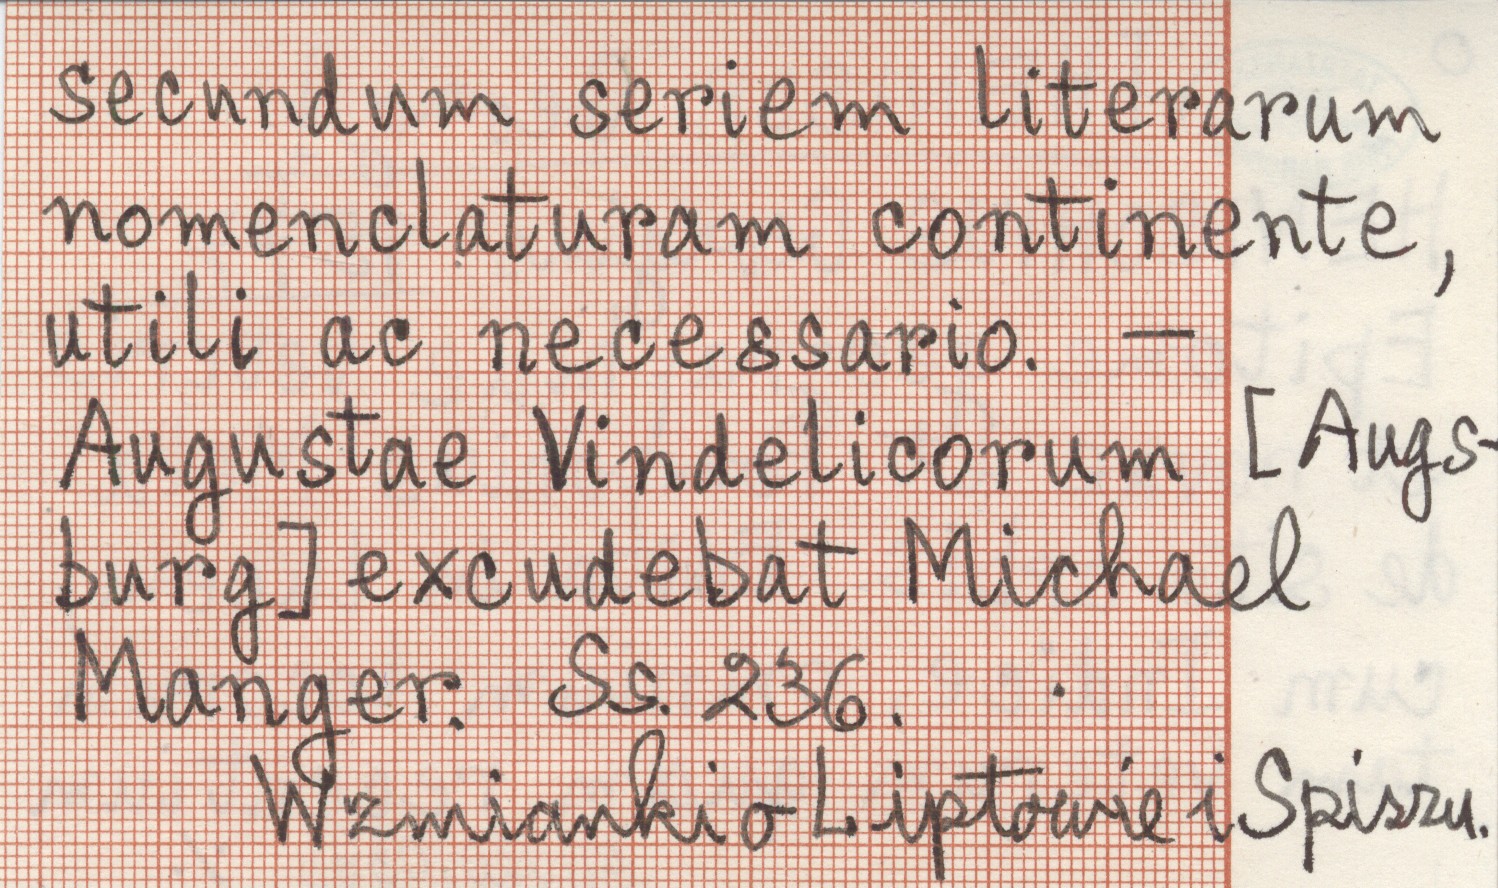 secundum seriem literarum
nomenclaturam continente,
utili ac necessario. —
Augustae Vindelicorum [Augs-
burg] excudebat Michael
Manger. Ss. 236.
Wzmianki o Liptowie i Spiszu.